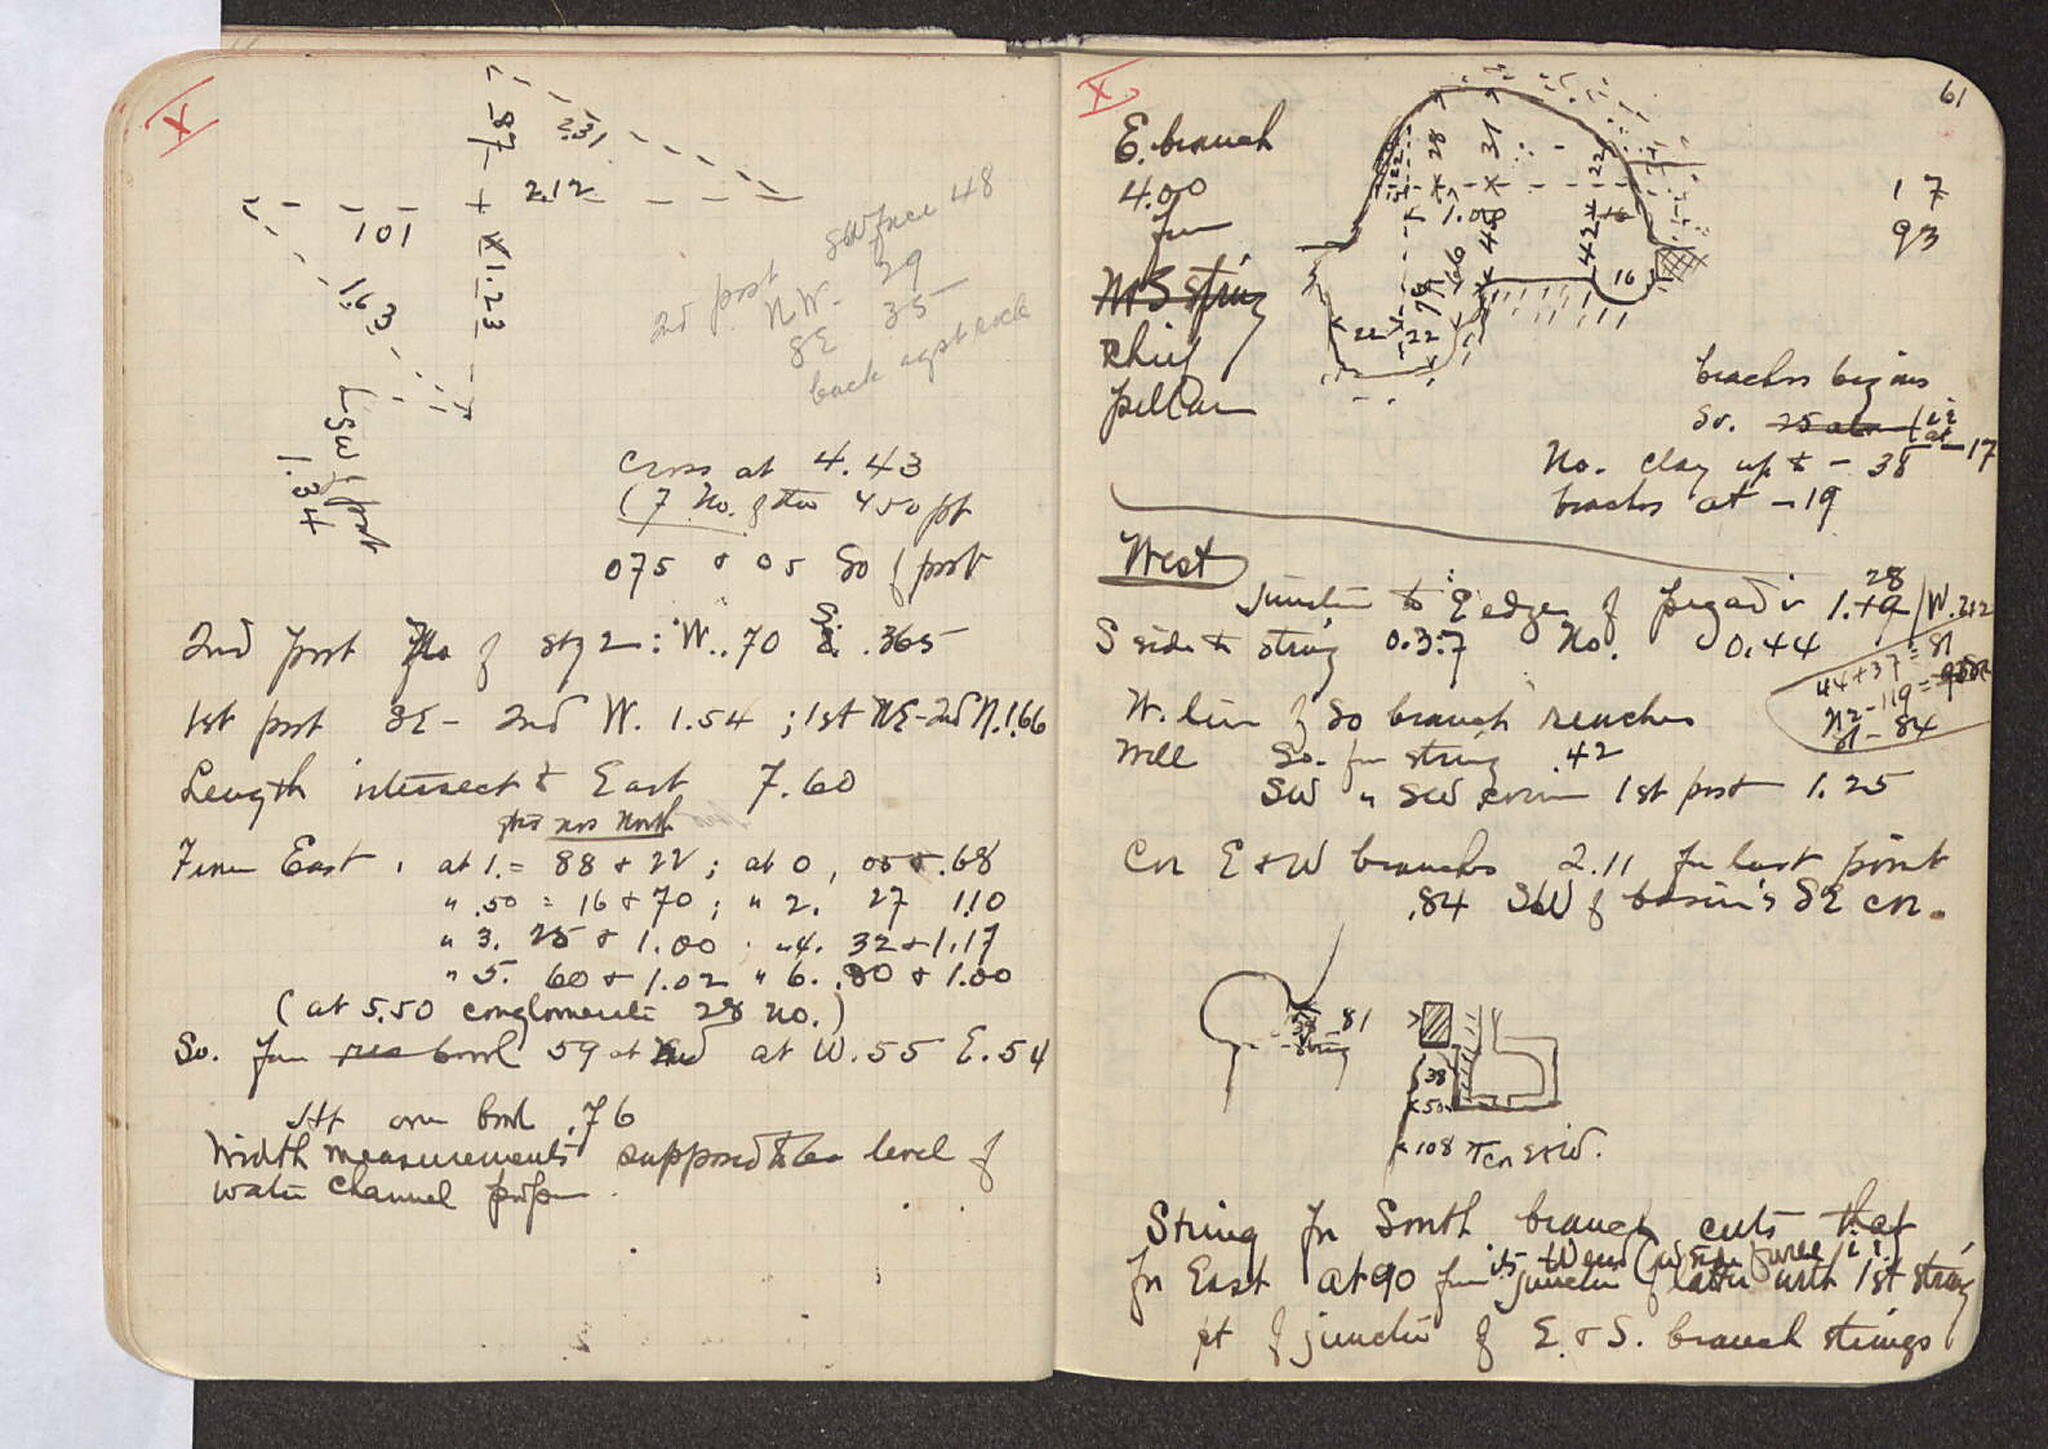 X
.87
2.31
2.12
101
1.23
1.63
SW post
1.34
SW face 48
2nd post N.W. 29
SE 35
back agst rock
Cross at 4.43
(7 No. of the 450 pt
075 & 05 So of post
2nd post of stg 2: W. .70 S. .365
1st post SE - 2nd W. 1.54 ; 1st NE - 2nd N. 1.66
Length intersect to East 7.60
North
From East, at 1. = 88 & 22 ; at 0, 05 & .68
" .50 = 16 & 70 ; " 2. 27 1.10
" 3. 25 & 1.00 " 4. 32 & 1.17
" 5. 60 & 1.02 " 6. .80 & 1.00
(at 5.50 conglomerate 28 No.)
So. from bowl 59 at at W. 55 E. 54
Ht over bowl .76
Width measurements supposed to be level of
water channel proper
X
61
E. branch
4.00
from
string
Chief
pillar
28
31
22
1.00
16
42
48
66
16
22
22
17
93
branches begins
So. 25 at -17
No. clay up to - 38
branches at - 19
West
28
Junction to E edge of 1.19 / W. 2.12
S side to string 0.37 No. 0.44
44 + 37 = 81
- 84
W. line of So branch reaches
Well So. from string .42
SW " SW corner 1st post 1.25
Cor E & W branches 2.11 from last point
.84 SW of basin's SE cor.
38 81
string
38
50
108
cor E & W.
String for South branch cuts that
its W end
for East at 90 from junction of latter with 1st string
pt of junction of E. & S. branch strings